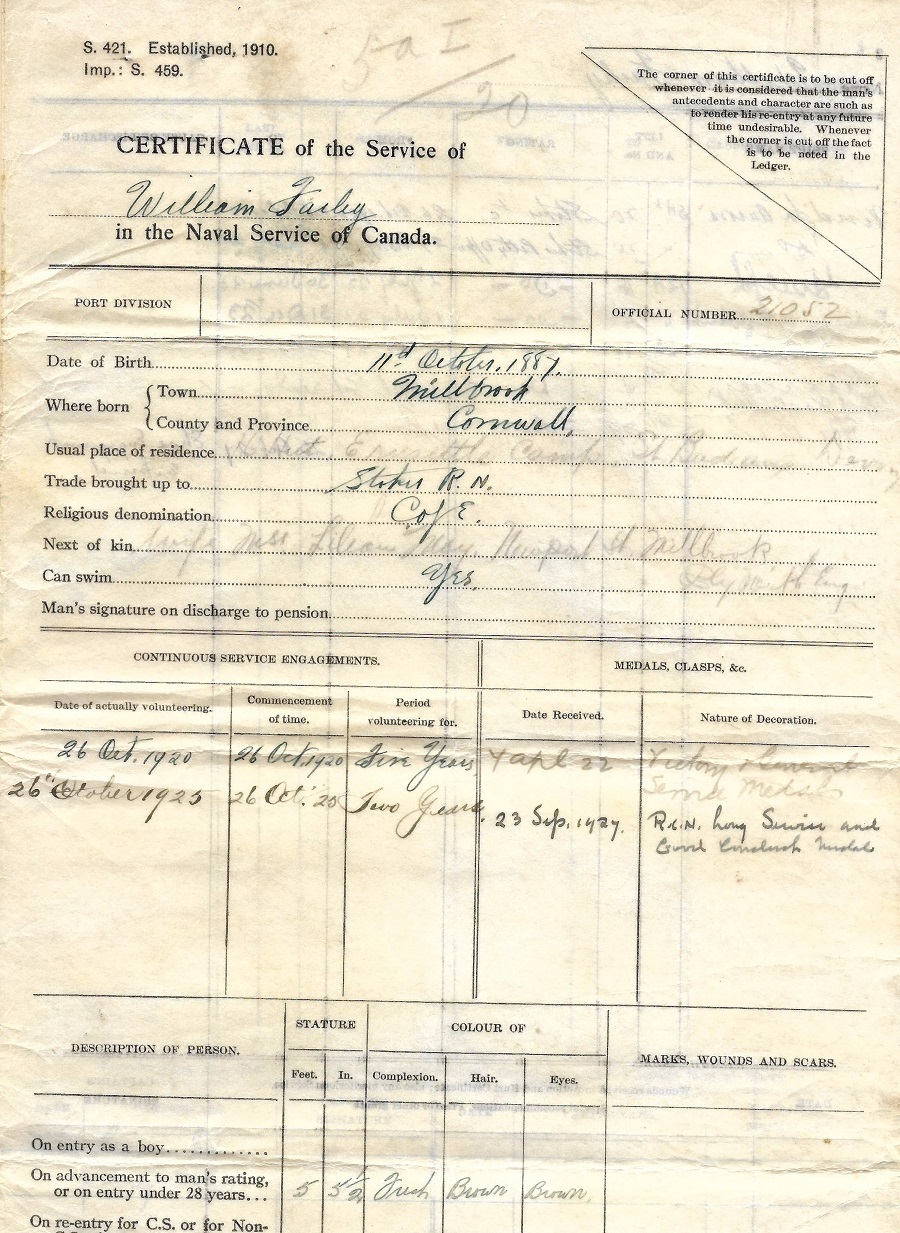 S. 421. Established, 1910.
Imp.: S. 459.
5a I
20
The corner of this certificate is to be cut off
whenever it is considered that the man's
antecedents and character are such as
to render his re-entry at any future
time undesirable. Whenever
the corner is cut off the fact
is to be noted in the
Ledger.
CERTIFICATE of the Service of
William
in the Naval Service of Canada.
PORT DIVISION
OFFICIAL NUMBER 21052
Date of Birth 11th October, 1887.
Where born { Town Millbrook
County and Province Cornwall,
Usual place of residence Camp, St Budeaux Devon
Trade brought up to Stoker R.N.
Religious denomination C of E.
Next of kin Wife Lilean May Newport St. Millbrook
Can swim Yes.
Man's signature on discharge to pension
CONTINUOUS SERVICE ENGAGEMENTS.
MEDALS, CLASPS, &c.
Date of actually volunteering.
Commencement
of time.
Period
volunteering for.
Date Received.
Nature of Decoration.
26 Oct. 1920 26 Oct. 1920 Five Years 4 Apl 22 Victory & General
Service Medals
26th October 1925 26 Oct. 25 Two Years.
23 Sep. 1927. R.C.N. Long Service and
Good Conduct Medal
DESCRIPTION OF PERSON.
STATURE
COLOUR OF
MARKS, WOUNDS AND SCARS.
Feet. In. Complexion. Hair. Eyes.
On entry as a boy
On advancement to man's rating,
or on entry under 28 years... 5 5½ Fresh Brown Brown.
On re-entry for C.S. or for Non-